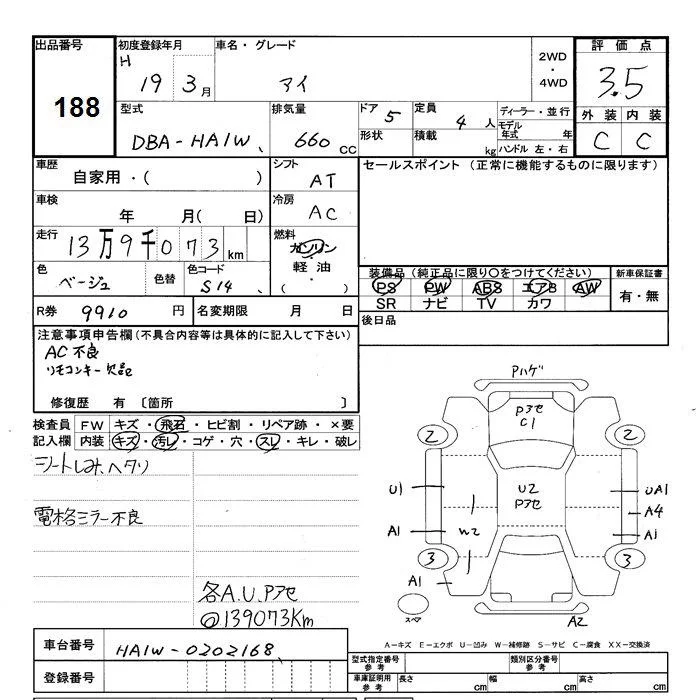 出品番号
188
初度登録年月
H
19 3月
車名・グレード
マイ
2WD
・
4WD
評価点
3.5
外装 内装
C C
型式
DBA-HA1W
排気量
660 CC
ドア 5
定員 4 人
形状
積載 kg
ディーラー・並行
モデル
年式 年
ハンドル 左・右
車歴
自家用・( )
シフト
AT
セールスポイント (正常に機能するものに限ります)
車検
年 月( 日)
冷房
AC
走行
13万9千073 km
燃料
ガソリン
・
軽油
・
( )
色
ベージュ
色替
色コード
S14
装備品(純正品に限り○をつけてください)
PS PW ABS エアB AW
SR ナビ TV カワ
新車保証書
有・無
R券 9910 円
名変期限 月 日
後日品
注意事項申告欄(不具合内容等は具体的に記入して下さい)
AC不良
リモコンキー欠品
修復歴 有 〔箇所 〕
検査員
記入欄
FW キズ・飛石・ヒビ割・リペア跡・×要
内装 キズ・汚レ・コゲ・穴・スレ・キレ・破レ
シートしみ、ヘタリ
電格ミラー不良
各A.U.Pアセ
@139073Km
Pハゲ
Pアセ
C1
2 2
U1
U2
Pアセ
UA1
A4
A1
W2
A1
3 3
A1
スペア
A2
A-キズ E-エクボ U-凹み W-補修跡 S-サビ C-腐食 XX-交換済
車台番号
HA1W-0202168
登録番号
型式指定番号
参考
類別区分番号
参考
車庫証明用
参考
長さ cm
幅 cm
高さ cm